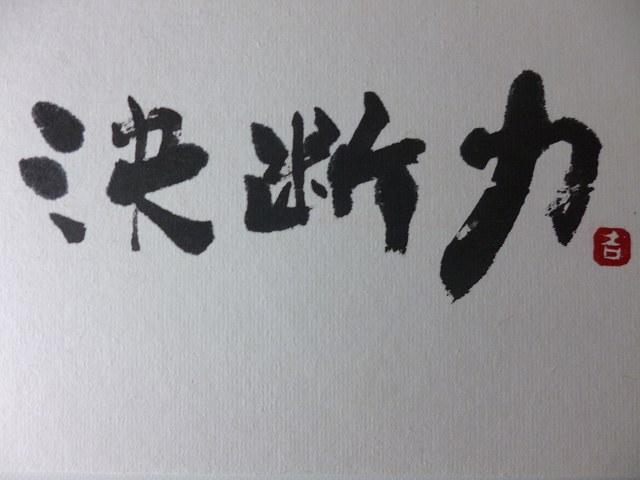 決断力
吉